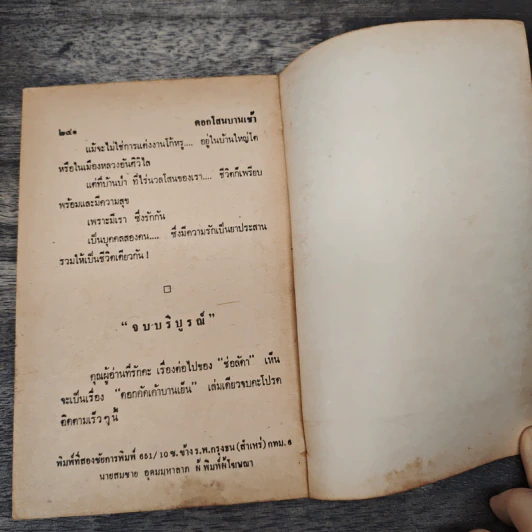 ๒๔๑ ดอกโสนบานเช้า
แม้จะไม่ใช่การแต่งงานโก้หรู.... อยู่ในบ้านใหญ่โต
หรือในเมืองหลวงอันศิวิไล
แต่ที่บ้านป่า ที่ไร่นวลโสนของเรา.... ชีวิตก็เพรียบ
พร้อมและมีความสุข
เพราะมีเรา ซึ่งรักกัน
เป็นบุคคลสองคน.... ซึ่งมีความรักเป็นยาประสาน
รวมให้เป็นชีวิตเดียวกัน !
“จบบริบูรณ์”
คุณผู้อ่านที่รักคะ เรื่องต่อไปของ “ช่อลัดา” เห็น
จะเป็นเรื่อง “ดอกคัดเค้าบานเย็น” เล่มเดียวจบคะโปรด
ติดตามเร็ว ๆ นี้
พิมพ์ที่สองชัยการพิมพ์ 661/10 ซ. ข้าง ร.พ.กรุงธน (สำเหร่) กทม. 6
นายสมชาย อุดมมหาลาภ ผู้พิมพ์ผู้โฆษณา